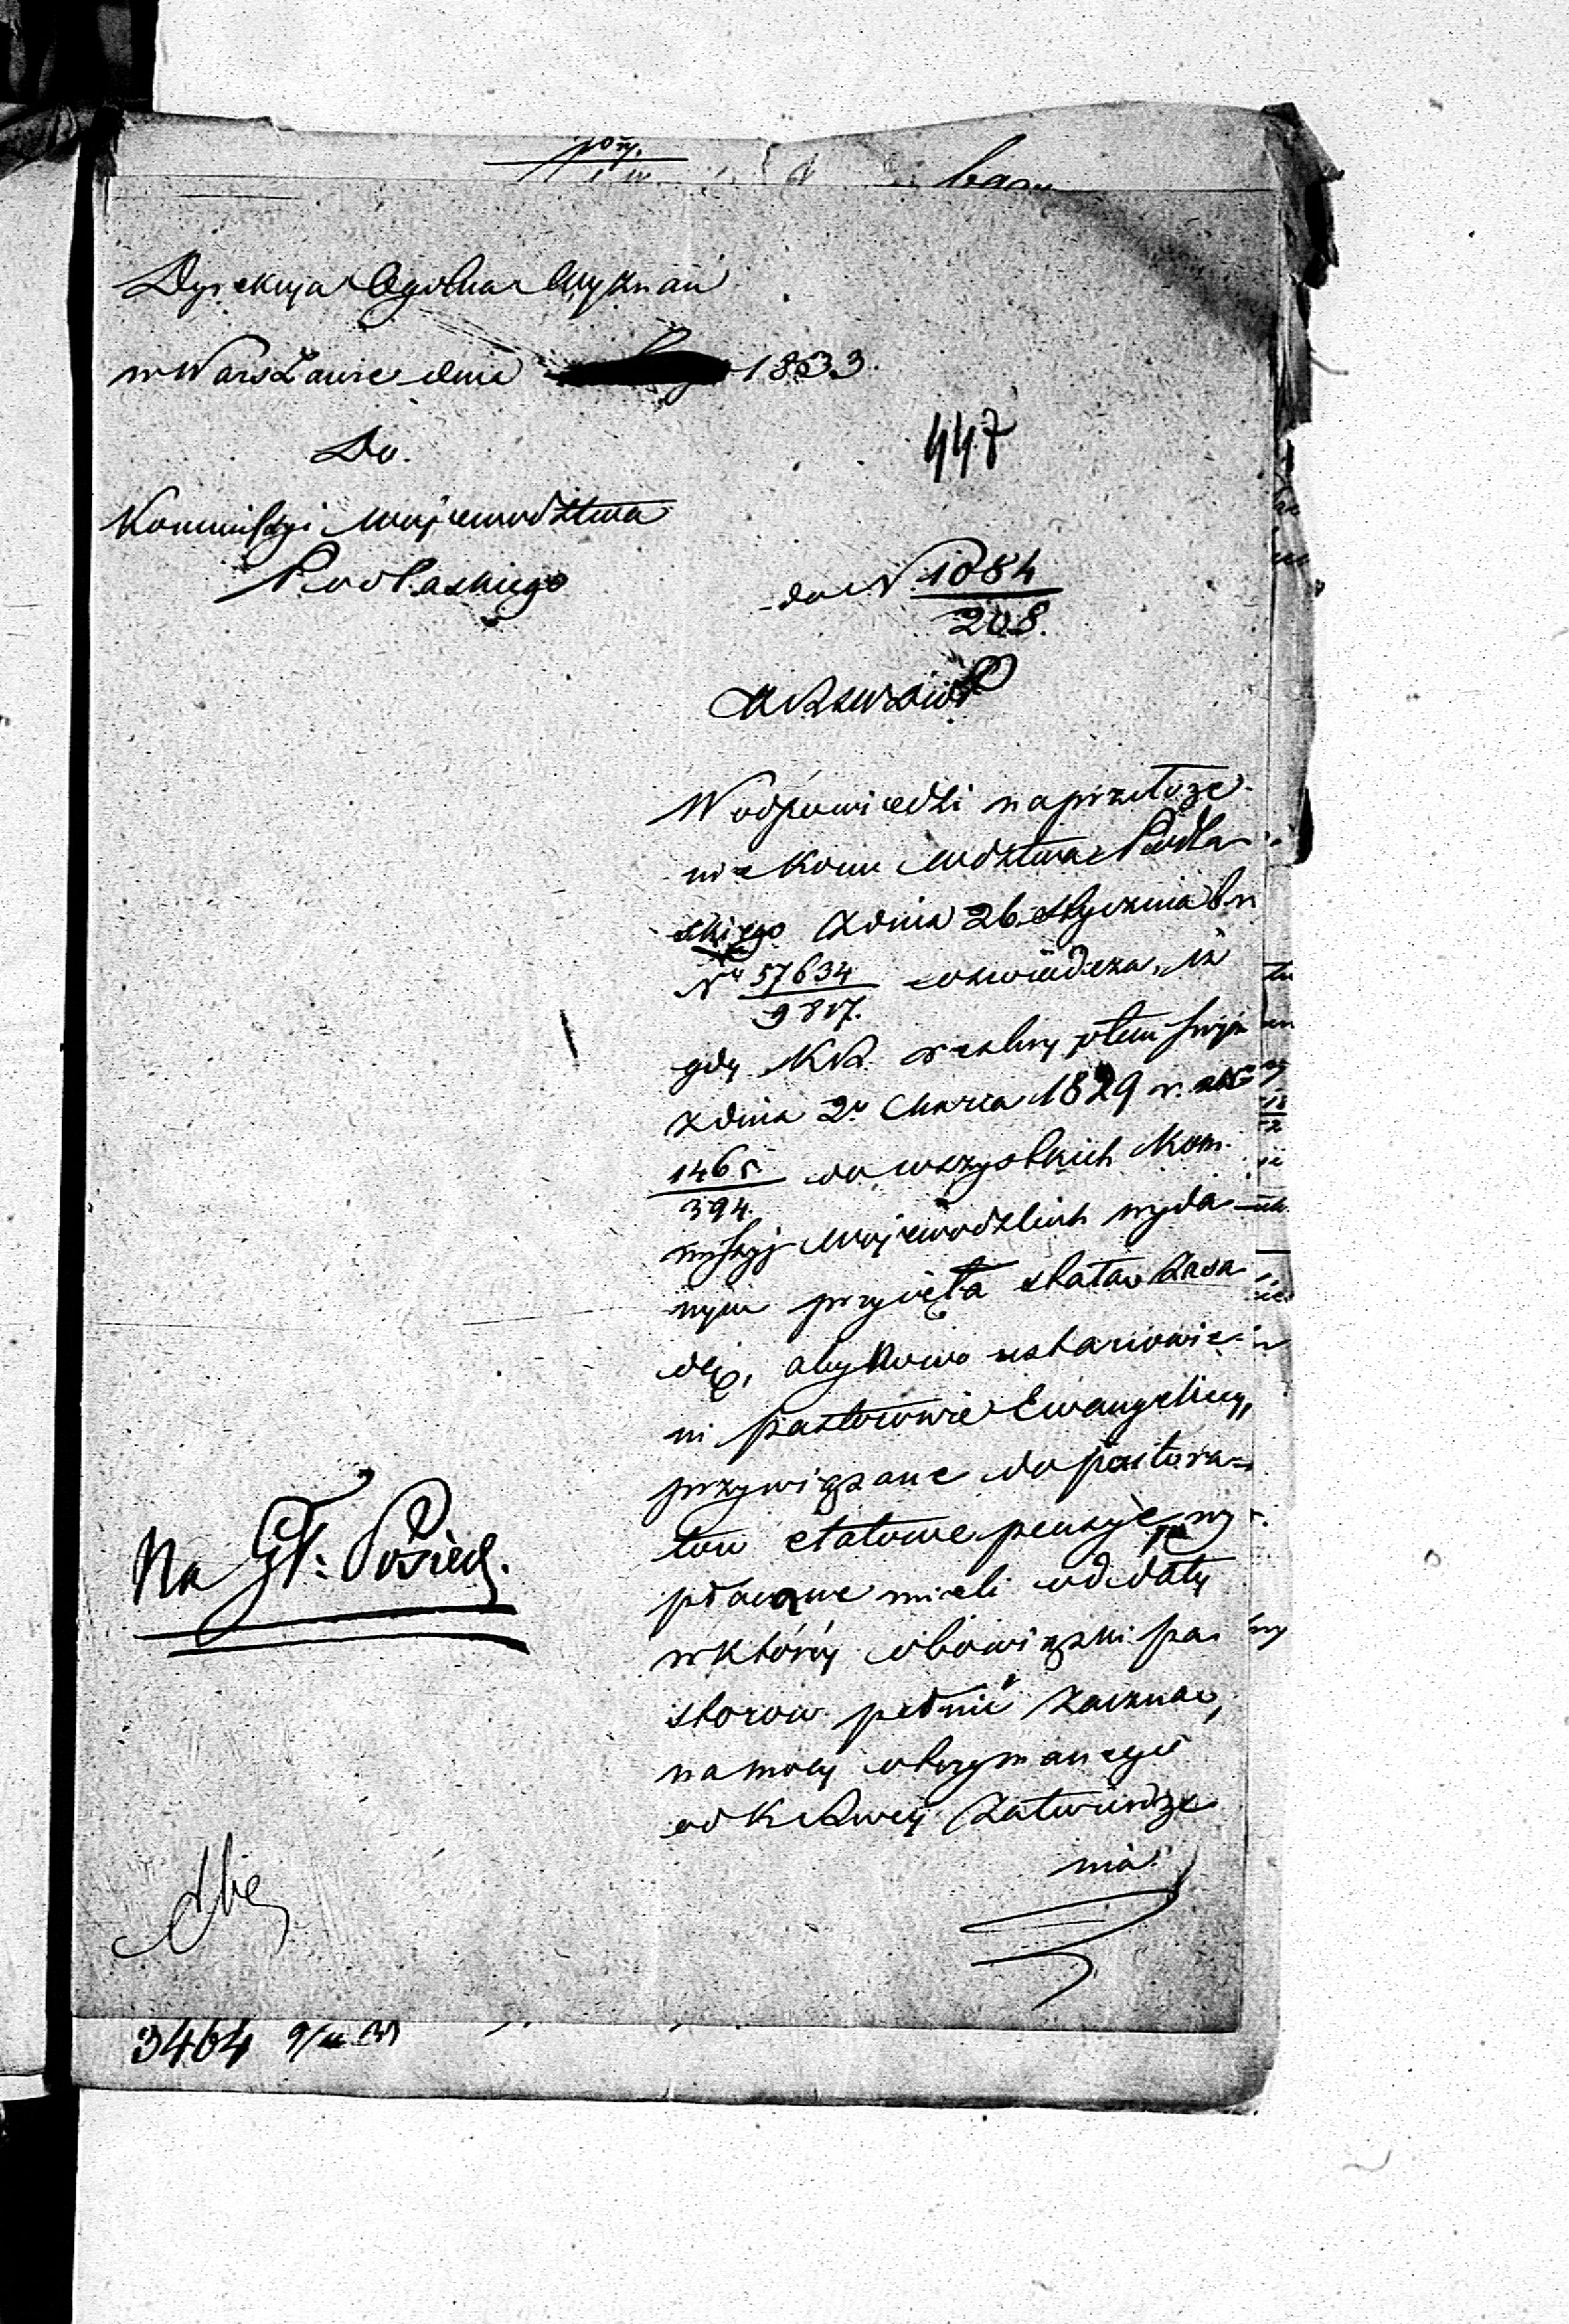 Dyrekcya Ogolna Wyznań
w Warszawie dnia 1833.
Do.
Kommissyi Wojewodztwa
Podlaskiego
447
do N. 1084
208.
W odpowiedzi na przełoże-
nie Kom Wdztwa Podla-
skiego z dnia 26 Stycznia b. r
Nº 57634
9817.
oswiadcza, iż
gdy KR. reskryptem swym
z dnia 2º Marca 1829 r.
1465
394.
do wszystkich Kom-
missyj Wojewodzkich wyda-
nym przyięła stałą zasa-
dę, aby nowo ustanowie-
ni pastorowie Ewangeliccy,
przywiązane do pastora-
tow etatowe pensye wy-
płacane mieli od daty
w którey obowiązki pa-
storow pełnić zaczną,
na mocy otrzymanego
od K Rwey zatwierdze-
nia.
Na Gł. Posied.
3464